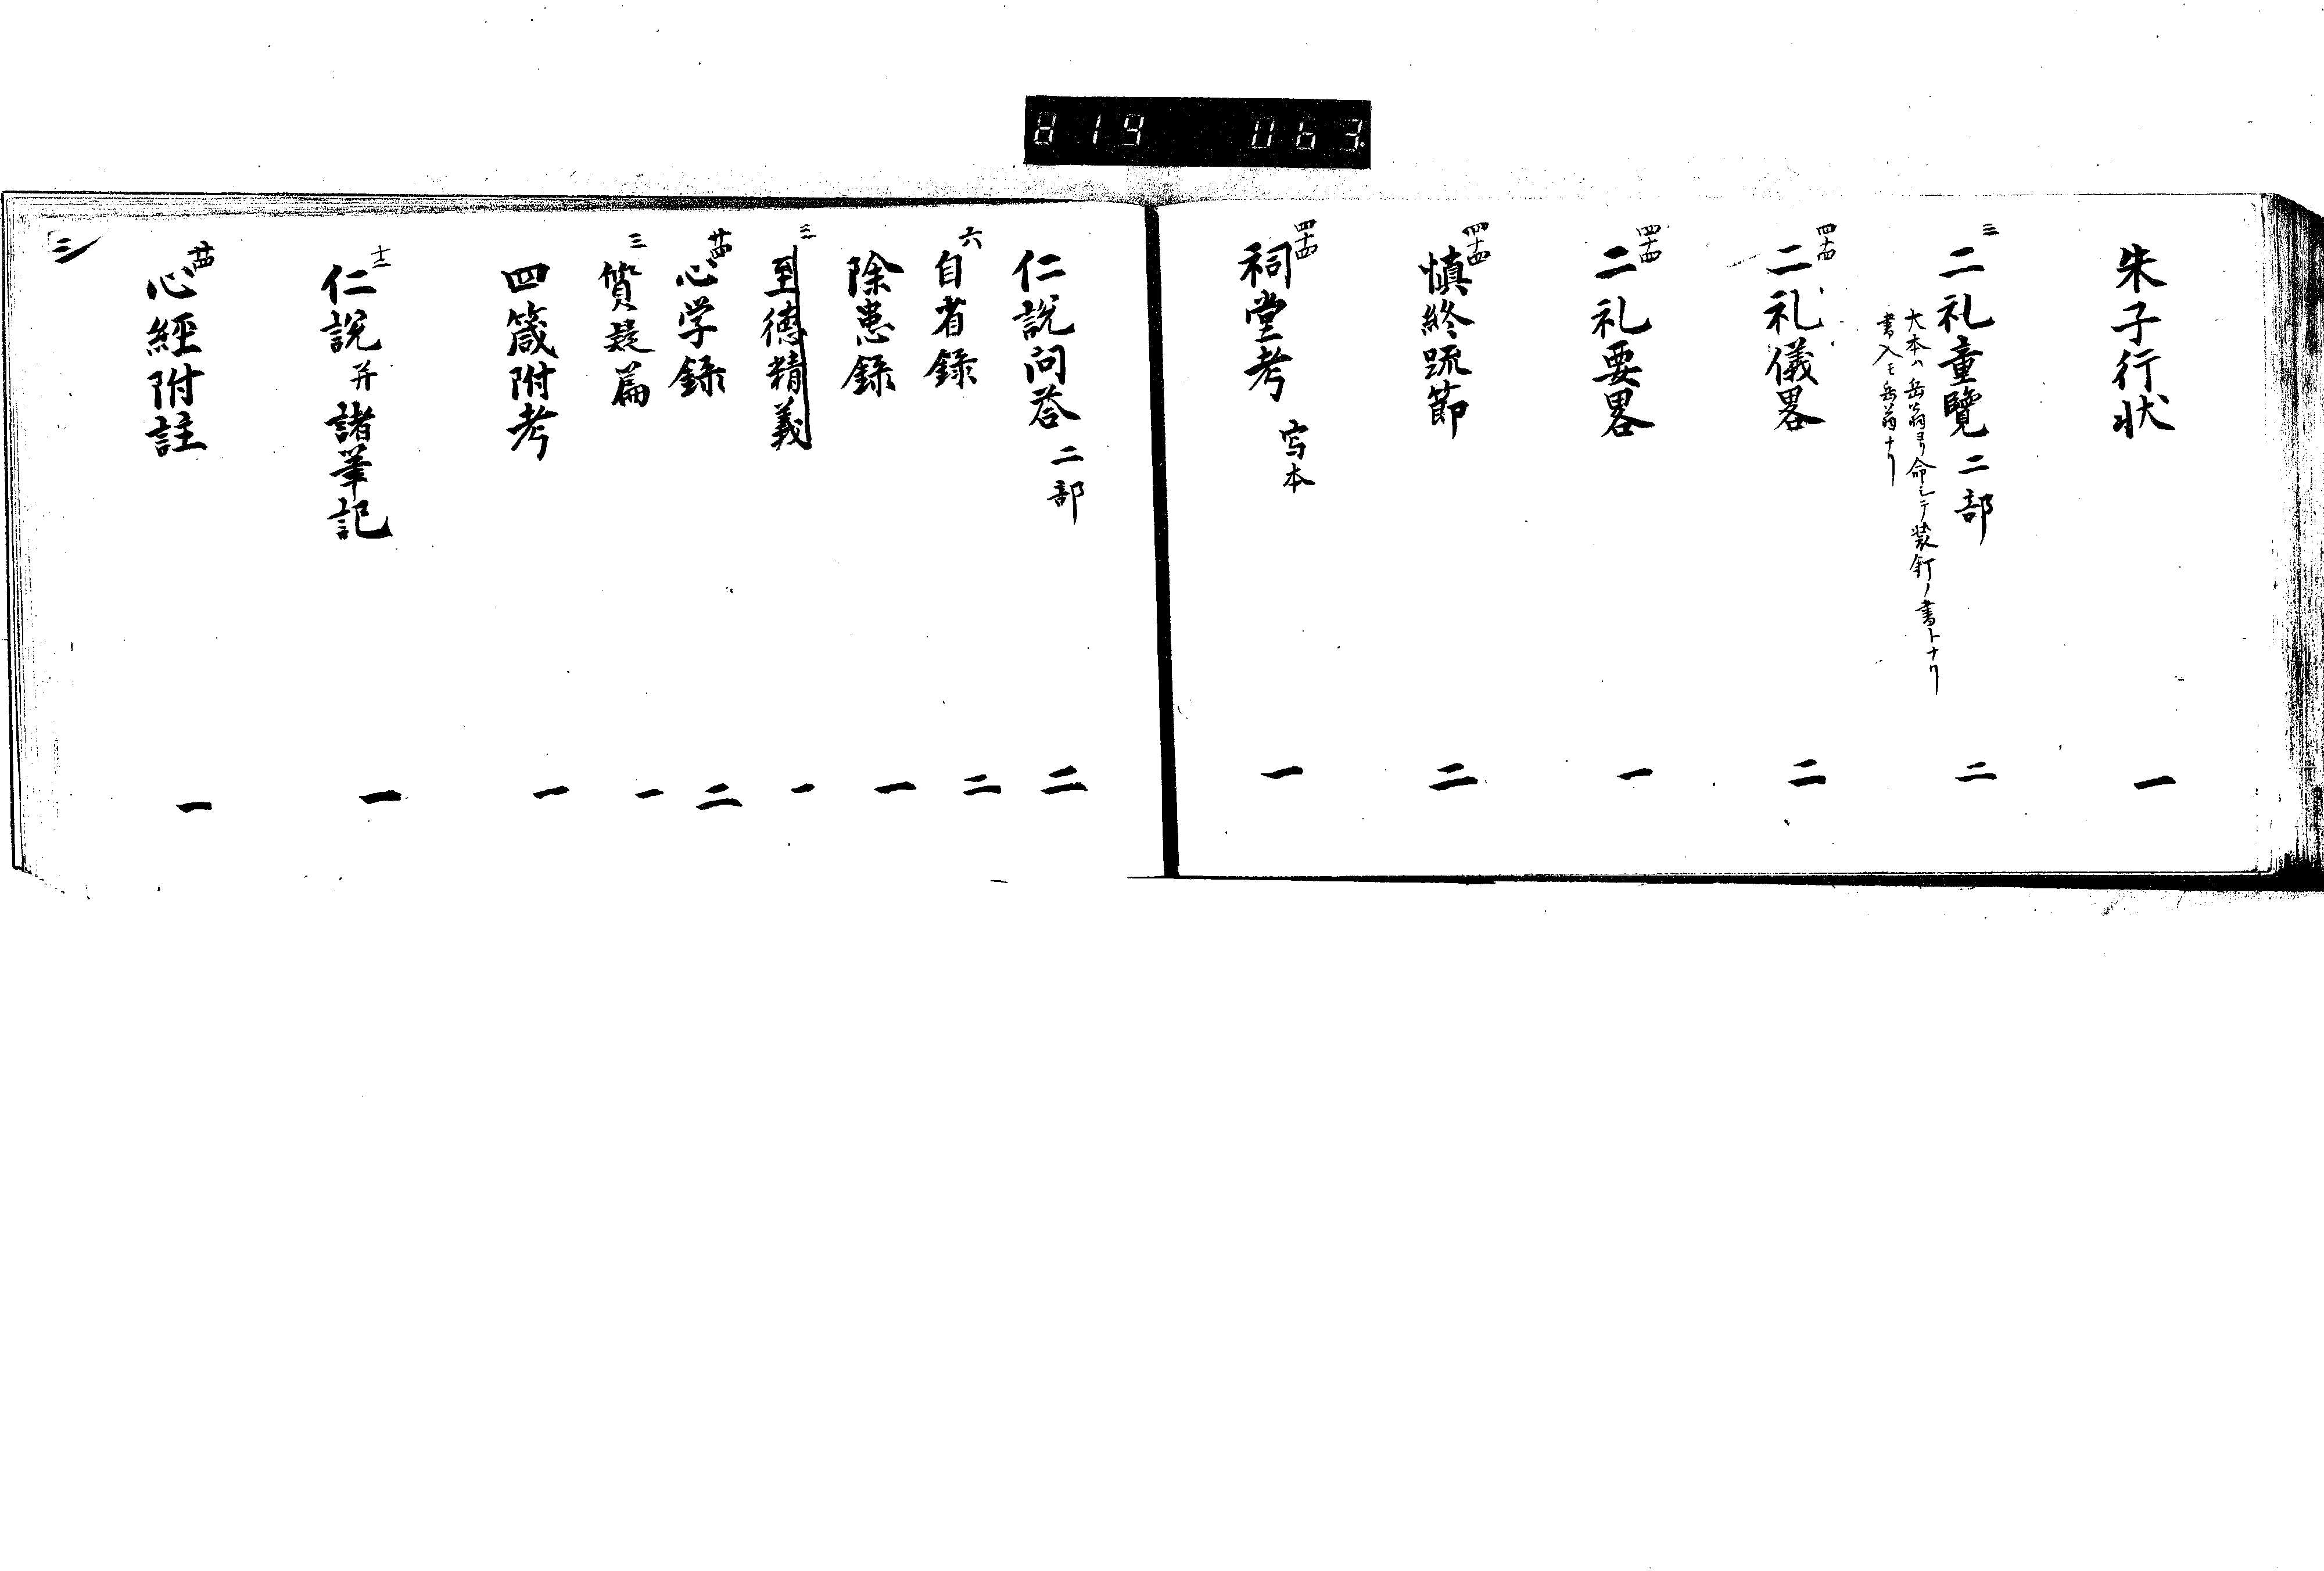 819 063
朱子行状 一
三 二礼童覽 二部 二
大本ハ岳翁ヨリ命シテ装釘ノ書トナリ
書入モ岳翁ナリ
四十四 二礼儀畧 二
四十四 二礼要畧 一
四十四 慎終疏節 二
四十四 祠堂考 写本 一
仁説問荅 二部 二
六 自省録 二
除患録 一
三 至徳精義 一
廿四 心学録 二
三 質疑篇 一
四箴附考 一
十二 仁説并諸筆記 一
廿四 心經附註 一
三